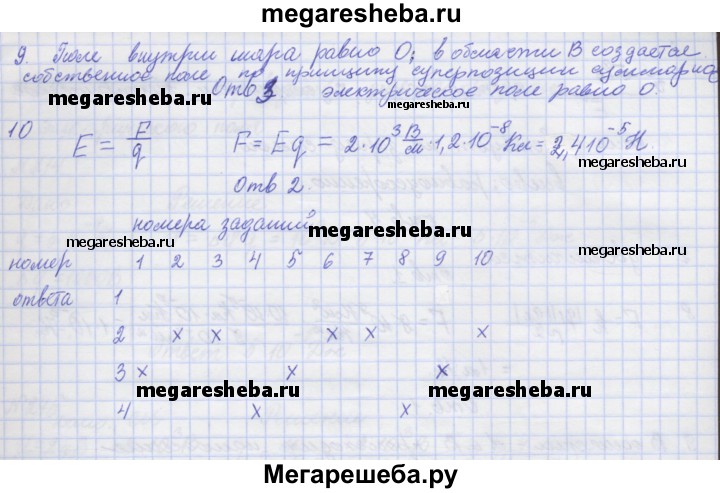 megaresheba.ru
9. Поле внутри шара равно 0; в области В создается
собственное поле по принципу суперпозиции суммарное
megaresheba.ru Отв 3. электрическое поле равно 0. megaresheba.ru
10 E = F/q F = Eq = 2·10³ В/м · 1,2·10⁻⁸ Кл = 2,4·10⁻⁵ Н.
megaresheba.ru
Отв 2.
номера заданий
megaresheba.ru megaresheba.ru
номер 1 2 3 4 5 6 7 8 9 10
ответа 1
2 x x x x x
3 x x x
megaresheba.ru megaresheba.ru
4 x x
Мегарешеба.ру